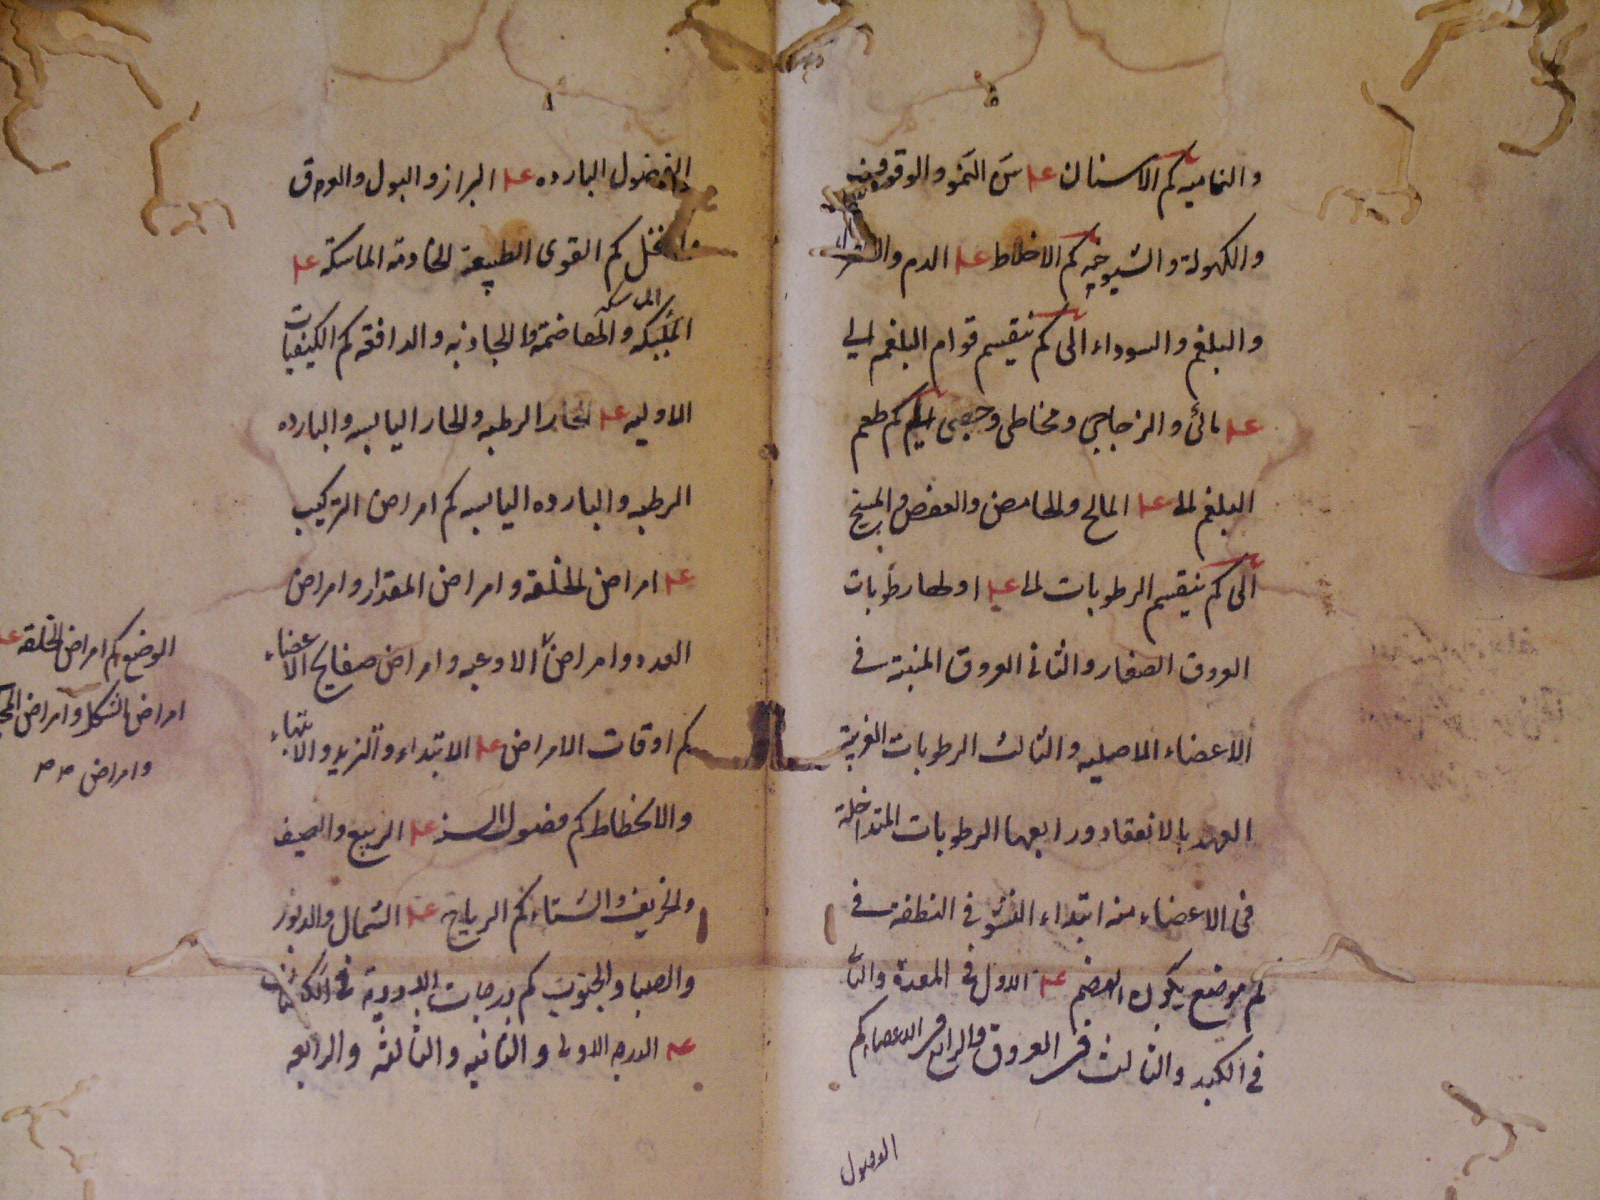 والناميه كم الاسنان عـ سن النمو والوقوف
والكهولة والشيوخيه كم الاخلاط عـ الدم والصفرا
والبلغم والسوداء الى كم ينقسم قوام البلغم الى
عـ مائى والزجاجى ومخاطى وجصى كم طعم
البلغم عـ المالح والحامض والعفص والمسيخ
الى كم ينقسم الرطوبات عـ اولها رطوبات
العروق الصغار والثانى العروق المنبتة فى
الاعضاء الاصليه والثالث الرطوبات القريبة
العهد بالانعقاد ورابعها الرطوبات المتداخلة
فى الاعضاء منه ابتداء النشو فى النطفه فى
كم موضع يكون الهضم عـ الاول فى المعدة والثا
فى الكبد والثالث فى العروق والرابع فى الاعضاء كم
الفصول
الفضول البارده عـ البراز والبول والعرق
كم القوى الطبيعة الخادمة الماسكة عـ
الماسكه
والهاضمة والجاذبه والدافعه كم الكيفيات
الاوليه عـ الحار الرطبه والحار اليابسه والبارده
الرطبه والبارده اليابسه كم امراض التركيب
عـ امراض الخلقة وامراض المقدار وامراض
العدد وامراض الاوعيه وامراض صفايح الاعضاء
كم اوقات الامراض عـ الابتداء والتزيد والانتهاء
والانحطاط كم فصول السنه عـ الربيع والصيف
والخريف والشتاء كم الرياح عـ الشمال والدبور
والصبا والجنوب كم درجات الادوية
عـ الدرجه الاولى والثانيه والثالثه والرابعه
الوضع كم امراض الخلقه عـ
امراض الشكل وامراض
وامراض